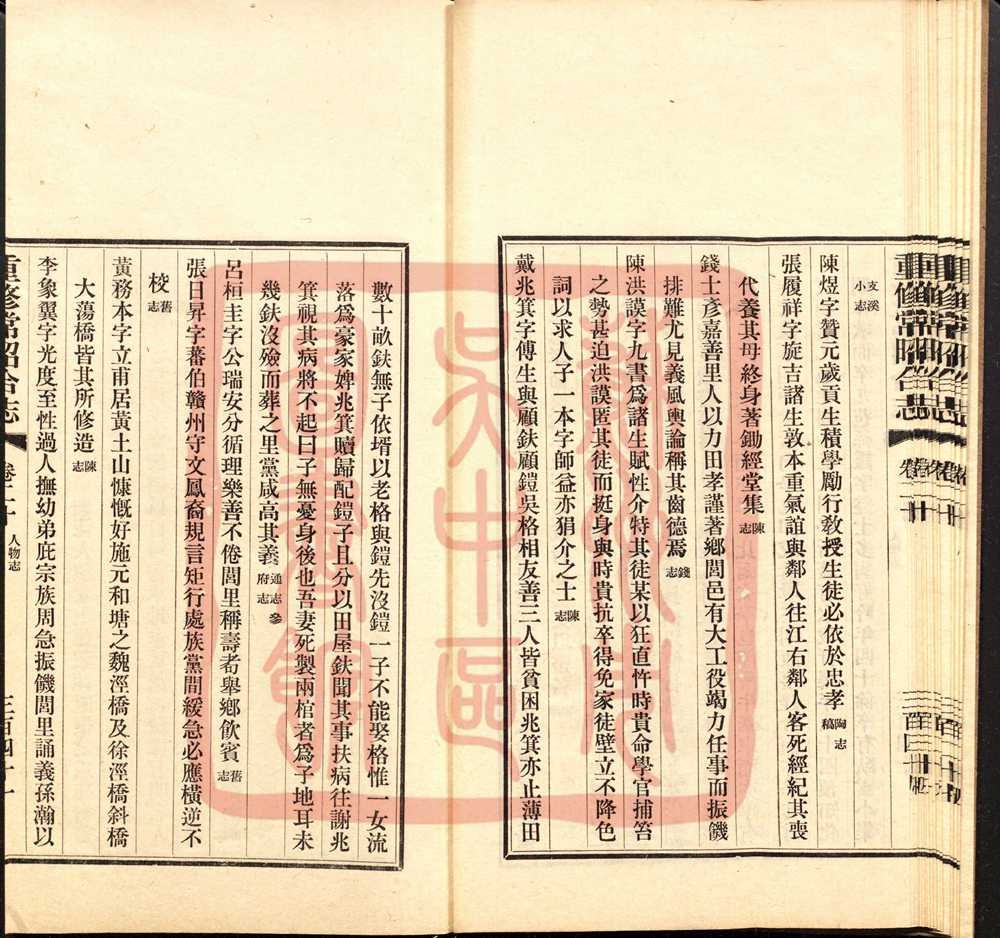 支溪小志
陳煜字贊元歲貢生積學勵行教授生徒必依於忠孝陶志稿
張履祥字旋吉諸生敦本重氣誼與鄰人往江右鄰人客死經紀其喪
代養其母終身著鋤經堂集陳志
錢士彥嘉善里人以力田孝謹著鄉閭邑有大工役竭力任事而振饑
排難尤見義風輿論稱其齒德焉錢志
陳洪謨字九書爲諸生賦性介特其徒某以狂直忤時貴命學官捕笞
之勢甚迫洪謨匿其徒而挺身與時貴抗卒得免家徒壁立不降色
詞以求人子一本字師益亦狷介之士陳志
戴兆箕字傅生與顧鈇顧鎧吳格相友善三人皆貧困兆箕亦止薄田
數十畝鈇無子依壻以老格與鎧先沒鎧一子不能娶格惟一女流
落爲豪家婢兆箕贖歸配鎧子且分以田屋鈇聞其事扶病往謝兆
箕視其病將不起曰子無憂身後也吾妻死製兩棺者爲子地耳未
幾鈇沒殮而葬之里黨咸高其義通志參府志
呂桓圭字公瑞安分循理樂善不倦閭里稱壽耇舉鄉飲賓舊志
張日昇字蕃伯贛州守文鳳裔規言矩行處族黨間緩急必應橫逆不
校舊志
黃務本字立甫居黃土山慷慨好施元和塘之魏涇橋及徐涇橋斜橋
大蕩橋皆其所修造陳志
李象翼字光度至性過人撫幼弟庇宗族周急振饑閭里誦義孫瀚以
重修常昭合志
卷二十
人物志